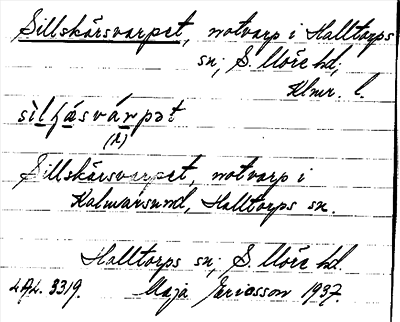 Sillskärsvarpet, notvarp i Halltorps
sn, S. Möre hd,
Klmr. l.
silʃásvárpət
(ʌ)
Sillskärsvarpet, notvarp i
Kalmarsund, Halltorps sn.
Halltorps sn, S. Möre hd.
LAL. 3319. Maja Ericsson 1937.